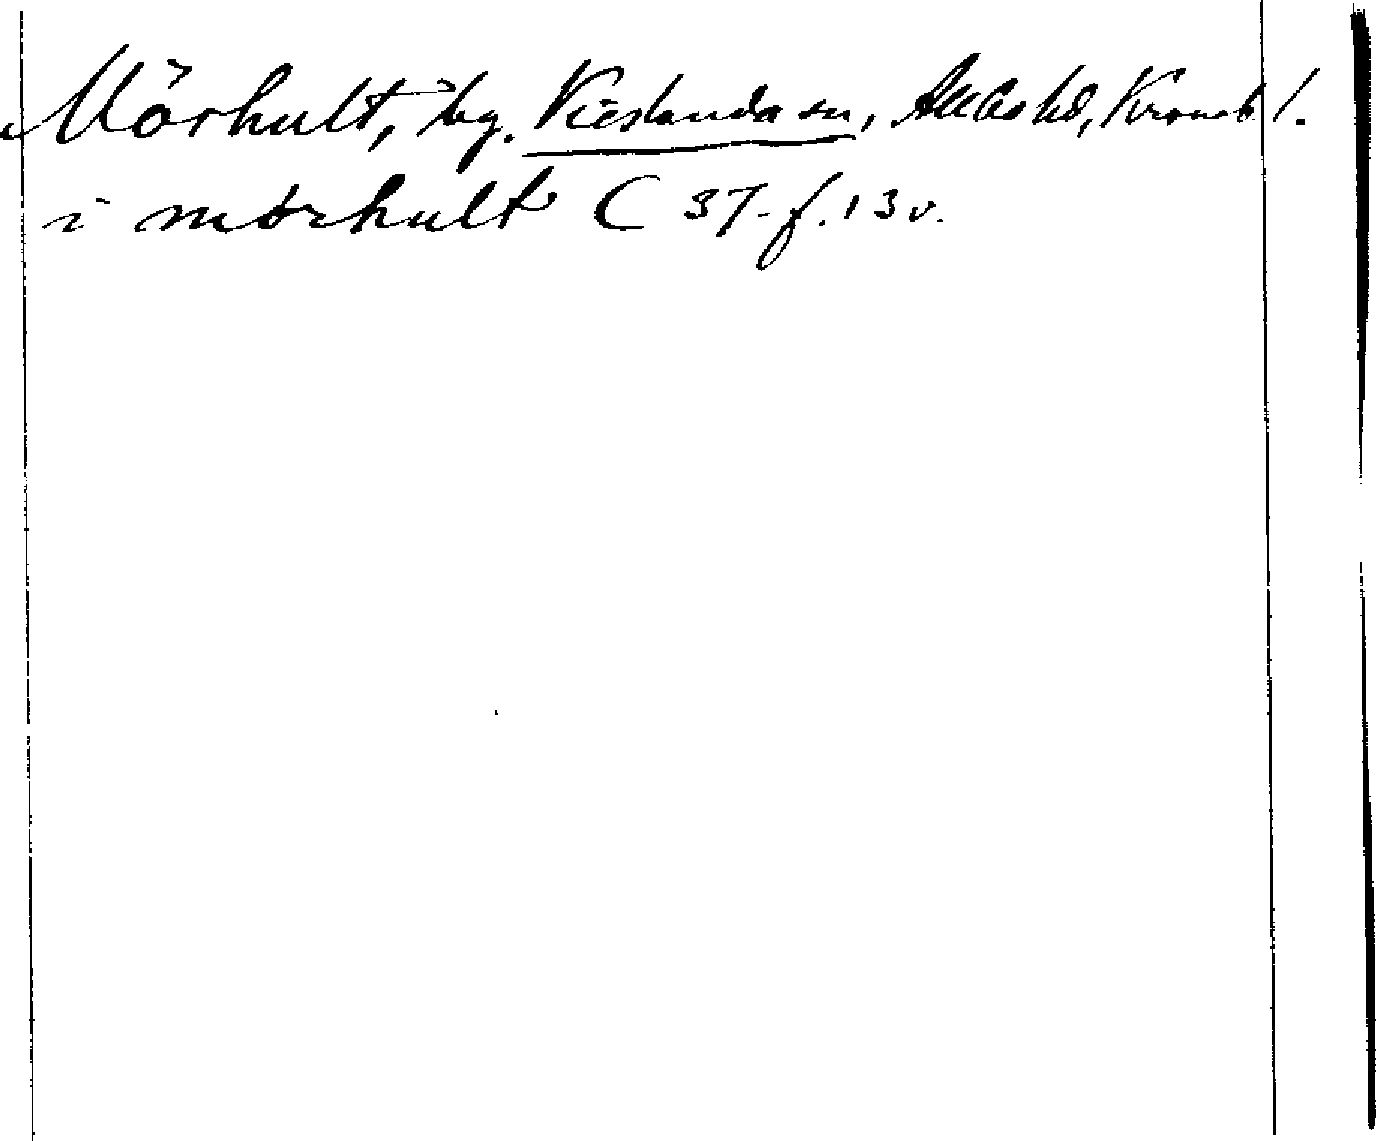 Mörhult, by. Vieslanda sn, Allbo hd, Kronob l.
i mörhult C 37 f. 13 v.